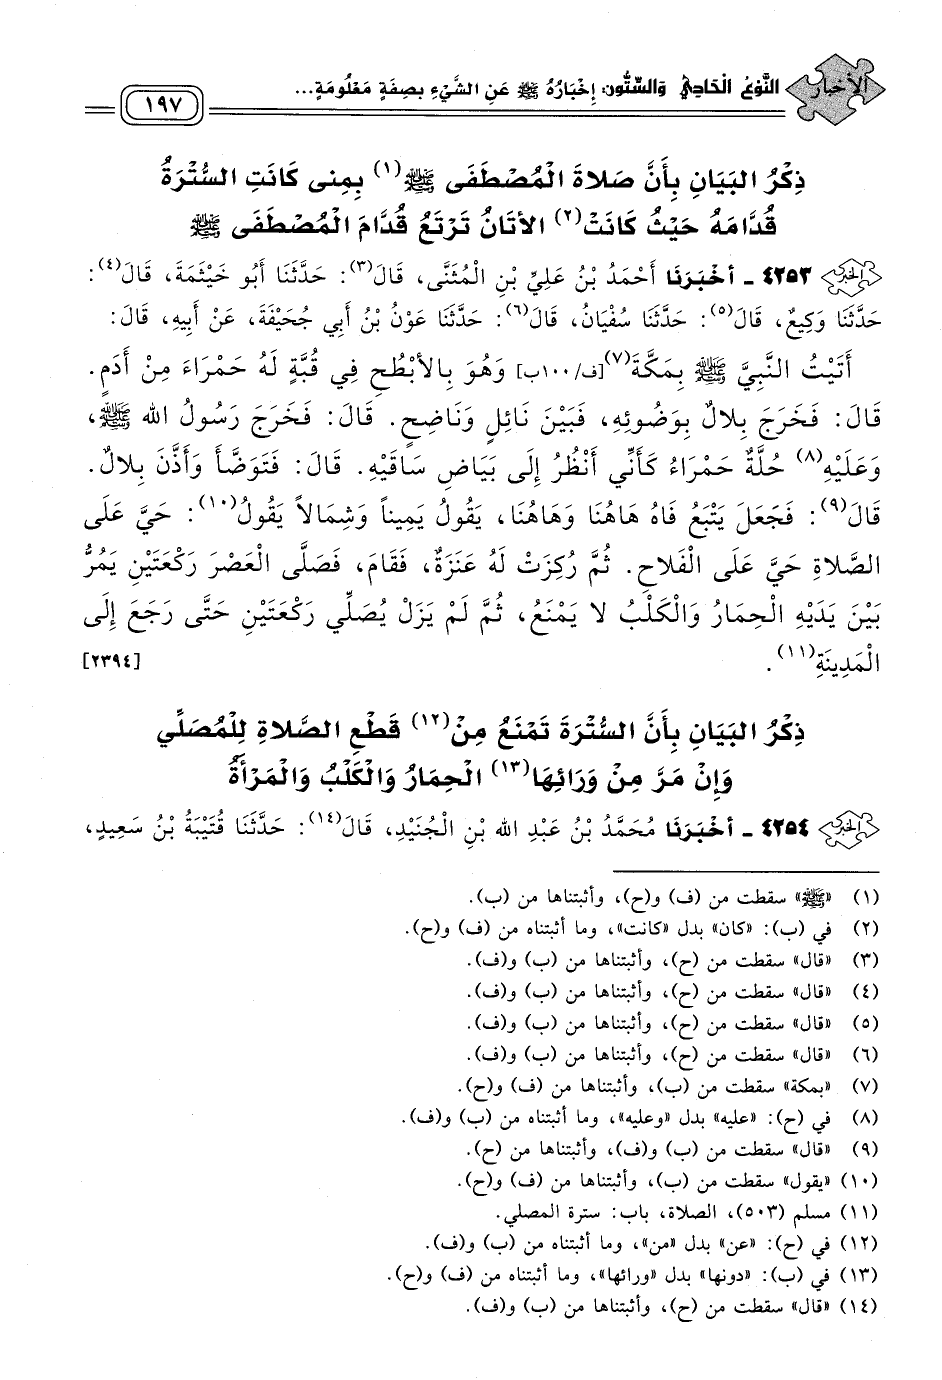 الأخبار
النَّوْعُ الْحَادِي وَالسِّتُّونَ: إِخْبَارُهُ ﷺ عَنِ الشَّيْءِ بِصِفَةٍ مَعْلُومَةٍ...
١٩٧
ذِكْرُ البَيَانِ بِأَنَّ صَلَاةَ الْمُصْطَفَى ﷺ(١) بِمِنى كَانَتِ السُّتْرَةُ
قُدَّامَهُ حَيْثُ كَانَتْ(٢) الأَتَانُ تَرْتَعُ قُدَّامَ الْمُصْطَفَى ﷺ
الخبر ٤٢٥٣ - أَخْبَرَنَا أَحْمَدُ بْنُ عَلِيِّ بْنِ الْمُثَنَّى، قَالَ(٣): حَدَّثَنَا أَبُو خَيْثَمَةَ، قَالَ(٤):
حَدَّثَنَا وَكِيعٌ، قَالَ(٥): حَدَّثَنَا سُفْيَانُ، قَالَ(٦): حَدَّثَنَا عَوْنُ بْنُ أَبِي جُحَيْفَةَ، عَنْ أَبِيهِ، قَالَ:
أَتَيْتُ النَّبِيَّ ﷺ بِمَكَّةَ(٧)[ف/١٠٠ب] وَهُوَ بِالأَبْطَحِ فِي قُبَّةٍ لَهُ حَمْرَاءَ مِنْ أَدَمٍ.
قَالَ: فَخَرَجَ بِلالٌ بِوَضُوئِهِ، فَبَيْنَ نَائِلٍ وَنَاضِحٍ. قَالَ: فَخَرَجَ رَسُولُ الله ﷺ،
وَعَلَيْهِ(٨) حُلَّةٌ حَمْرَاءُ كَأَنِّي أَنْظُرُ إِلَى بَيَاضِ سَاقَيْهِ. قَالَ: فَتَوَضَّأَ وَأَذَّنَ بِلالٌ.
قَالَ(٩): فَجَعَلَ يَتْبَعُ فَاهُ هَاهُنَا وَهَاهُنَا، يَقُولُ يَمِيناً وَشِمَالاً يَقُولُ(١٠): حَيَّ عَلَى
الصَّلاةِ حَيَّ عَلَى الْفَلاحِ. ثُمَّ رُكِزَتْ لَهُ عَنَزَةٌ، فَقَامَ، فَصَلَّى الْعَصْرَ رَكْعَتَيْنِ يَمُرُّ
بَيْنَ يَدَيْهِ الْحِمَارُ وَالْكَلْبُ لا يَمْنَعُ، ثُمَّ لَمْ يَزَلْ يُصَلِّي رَكْعَتَيْنِ حَتَّى رَجَعَ إِلَى
الْمَدِينَةِ(١١). [٢٣٩٤]
ذِكْرُ البَيَانِ بِأَنَّ السُّتْرَةَ تَمْنَعُ مِنْ(١٢) قَطْعِ الصَّلاةِ لِلْمُصَلِّي
وَإِنْ مَرَّ مِنْ وَرَائِهَا(١٣) الْحِمَارُ وَالْكَلْبُ وَالْمَرْأَةُ
الخبر ٤٢٥٤ - أَخْبَرَنَا مُحَمَّدُ بْنُ عَبْدِ الله بْنِ الْجُنَيْدِ، قَالَ(١٤): حَدَّثَنَا قُتَيْبَةُ بْنُ سَعِيدٍ،
(١) «ﷺ» سقطت من (ف) و(ح)، وأثبتناها من (ب).
(٢) في (ب): «كان» بدل «كانت»، وما أثبتناه من (ف) و(ح).
(٣) «قال» سقطت من (ح)، وأثبتناها من (ب) و(ف).
(٤) «قال» سقطت من (ح)، وأثبتناها من (ب) و(ف).
(٥) «قال» سقطت من (ح)، وأثبتناها من (ب) و(ف).
(٦) «قال» سقطت من (ح)، وأثبتناها من (ب) و(ف).
(٧) «بمكة» سقطت من (ب)، وأثبتناها من (ف) و(ح).
(٨) في (ح): «عليه» بدل «وعليه»، وما أثبتناه من (ب) و(ف).
(٩) «قال» سقطت من (ب) و(ف)، وأثبتناها من (ح).
(١٠) «يقول» سقطت من (ب)، وأثبتناها من (ف) و(ح).
(١١) مسلم (٥٠٣)، الصلاة، باب: سترة المصلي.
(١٢) في (ح): «عن» بدل «من»، وما أثبتناه من (ب) و(ف).
(١٣) في (ب): «دونها» بدل «ورائها»، وما أثبتناه من (ف) و(ح).
(١٤) «قال» سقطت من (ح)، وأثبتناها من (ب) و(ف).